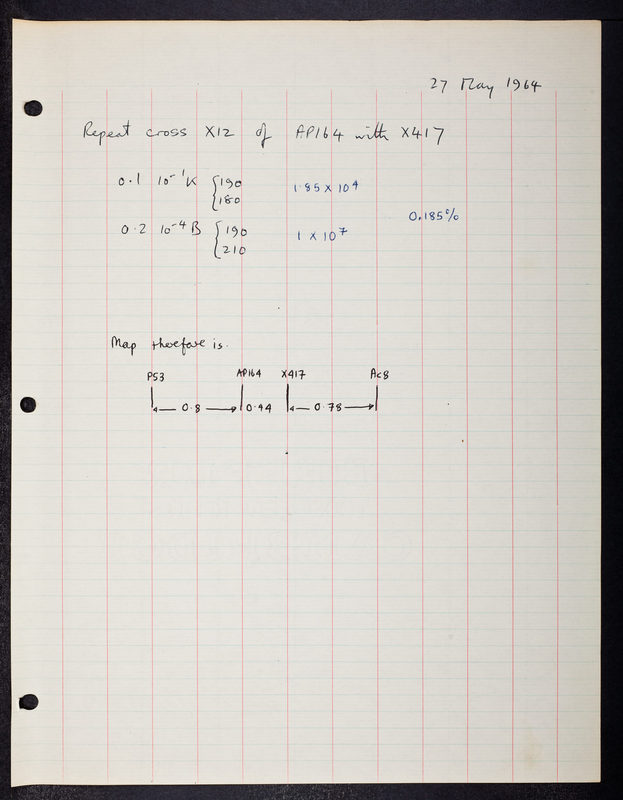 27 May 1964
Repeat cross X12 of AP164 with X417
0.1 10⁻¹K {190 1.85 x 10⁴
{180
0.185%
0.2 10⁻⁴B {190 1 x 10⁷
{210
Map therefore is.
P53 AP164 X417 Ac8
0.8 0.44 0.78